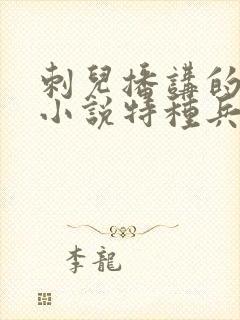 刺兒播講的
小說特種兵
李龍